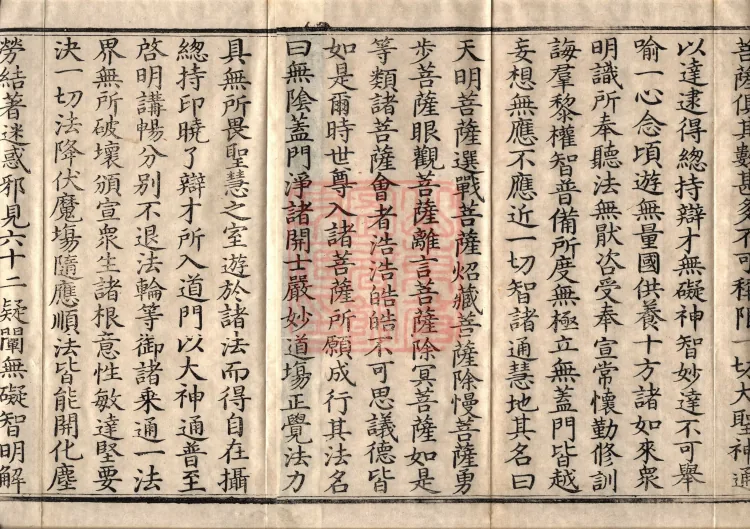 菩薩
一切大聖神通
以達逮得總持辯才無礙神智妙達不可舉
喻一心念頃遊無量國供養十方諸如來衆
明識所奉聽法無猒咨受奉宣常懷勤修訓
誨羣黎權智普備所度無極立無蓋門皆越
妄想無應不應近一切智諸通慧地其名曰
天明菩薩選戰菩薩炤藏菩薩除慢菩薩勇
步菩薩眼觀菩薩離言菩薩除冥菩薩如是
等類諸菩薩會者浩浩皓皓不可思議德皆
如是爾時世尊入諸菩薩所願成行其法名
曰無陰蓋門淨諸開士嚴妙道場正覺法力
具無所畏聖慧之室遊於諸法而得自在攝
總持印曉了辯才所入道門以大神通普至
啓明講暢分別不退法輪等御諸乘通一法
界無所破壞頒宣衆生諸根意性敏達堅要
決一切法降伏魔場隨應順法皆能開化塵
勞結著迷惑邪見六十二疑闡無礙智明解